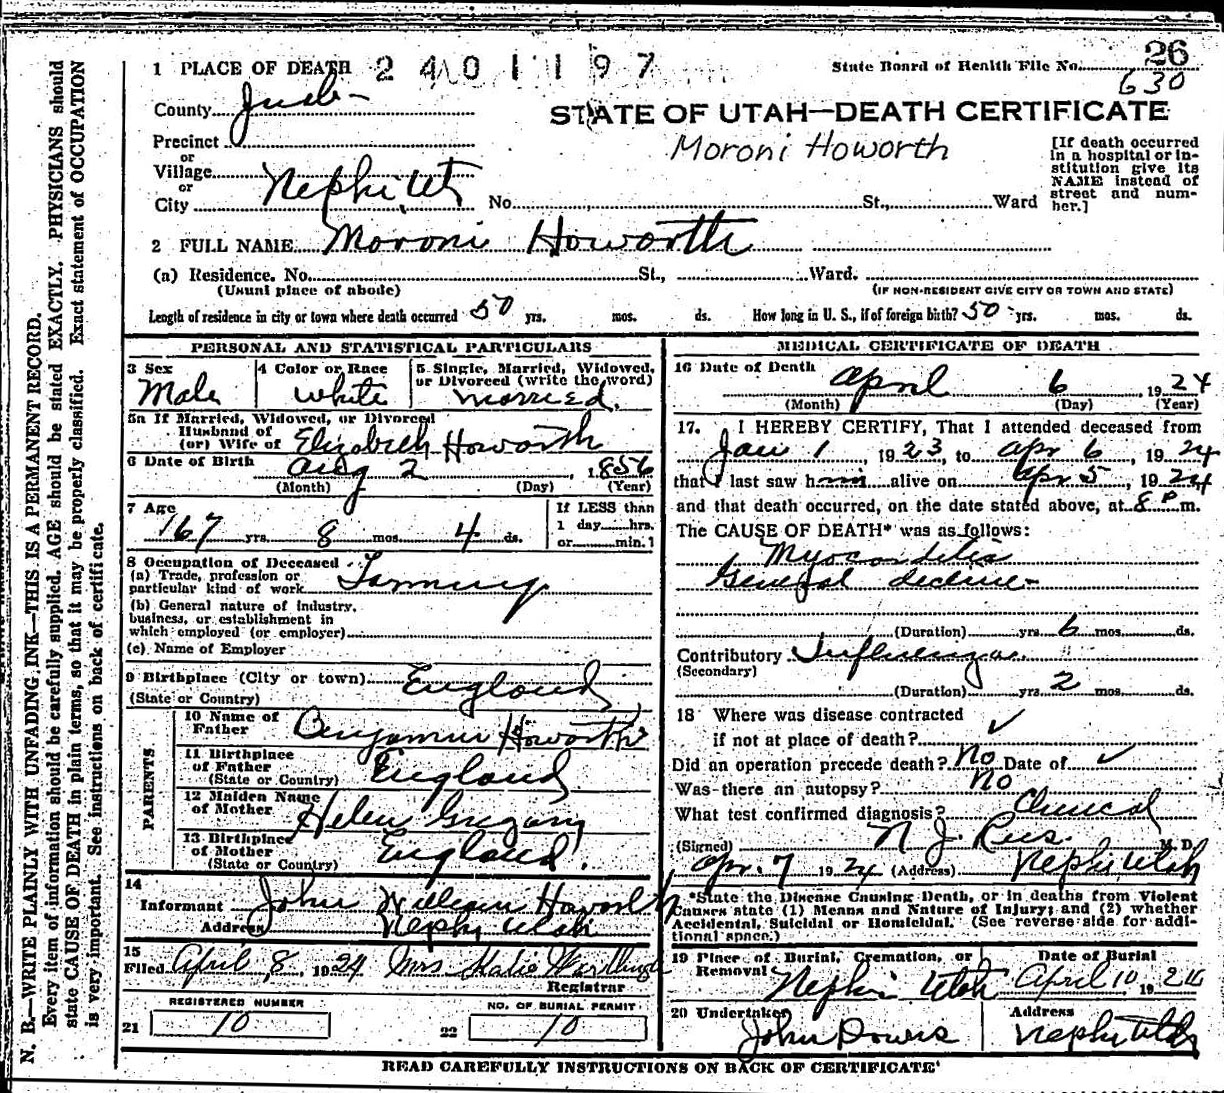 26
1 PLACE OF DEATH 2401197 State Board of Health File No. 630
County Juab
STATE OF UTAH—DEATH CERTIFICATE
Precinct
Moroni Howorth
or
Village
or
City Nephi Ut No. St., Ward
[If death occurred
in a hospital or in-
stitution give its
NAME instead of
street and num-
ber.]
2 FULL NAME Moroni Howorth
(a) Residence. No. St., Ward.
(Usual place of abode) (IF NON-RESIDENT GIVE CITY OR TOWN AND STATE)
Length of residence in city or town where death occurred 50 yrs. mos. ds. How long in U. S., if of foreign birth? 50 yrs. mos. ds.
PERSONAL AND STATISTICAL PARTICULARS
3 Sex
Male
4 Color or Race
White
5 Single, Married, Widowed,
or Divorced (write the word)
Married.
5a If Married, Widowed, or Divorced
Husband of
(or) Wife of Elizabeth Howorth
6 Date of Birth Aug 2, 1856
(Month) (Day) (Year)
7 Age
67 yrs. 8 mos. 4 ds.
If LESS than
1 day hrs.
or min.?
8 Occupation of Deceased
(a) Trade, profession or
particular kind of work
(b) General nature of Industry,
business, or establishment in
which employed (or employer)
(c) Name of Employer
9 Birthplace (City or town) England
(State or Country)
PARENTS
10 Name of
Father Benjamin Howorth
11 Birthplace
of Father
(State or Country) England
12 Maiden Name
of Mother Helen Gregory
13 Birthplace
of Mother
(State or Country) England.
14
Informant John William Howorth
Address Nephi Utah
15
Filed April 8, 1924 Mrs
Registrar
REGISTERED NUMBER
21 10
NO. OF BURIAL PERMIT
22 10
MEDICAL CERTIFICATE OF DEATH
16 Date of Death April 6 1924
(Month) (Day) (Year)
17. I HEREBY CERTIFY, That I attended deceased from
Jan 1, 1923, to Apr 6, 1924
that I last saw him alive on Apr 5, 1924
and that death occurred, on the date stated above, at 8 P m.
The CAUSE OF DEATH* was as follows:
Myocarditis
General decline
(Duration) yrs. 6 mos. ds.
Contributory Influenza
(Secondary)
(Duration) yrs. 2 mos. ds.
18 Where was disease contracted
if not at place of death? ✓
Did an operation precede death? No Date of ✓
Was there an autopsy? No
What test confirmed diagnosis? Clinical
(Signed) N J Rees. M. D.
Apr. 7 1924 (Address) Nephi Utah
*State the Disease Causing Death, or in deaths from Violent
Causes state (1) Means and Nature of Injury; and (2) whether
Accidental, Suicidal or Homicidal. (See reverse side for addi-
tional space.)
19 Place of Burial, Cremation, or
Removal Nephi Utah
Date of Burial
April 10, 1924
20 Undertaker
John
Address
Nephi Utah
READ CAREFULLY INSTRUCTIONS ON BACK OF CERTIFICATE
N. B.—WRITE PLAINLY WITH UNFADING INK—THIS IS A PERMANENT RECORD.
Every item of information should be carefully supplied. AGE should be stated EXACTLY. PHYSICIANS should
state CAUSE OF DEATH in plain terms, so that it may be properly classified. Exact statement of OCCUPATION
is very important. See instructions on back of certificate.